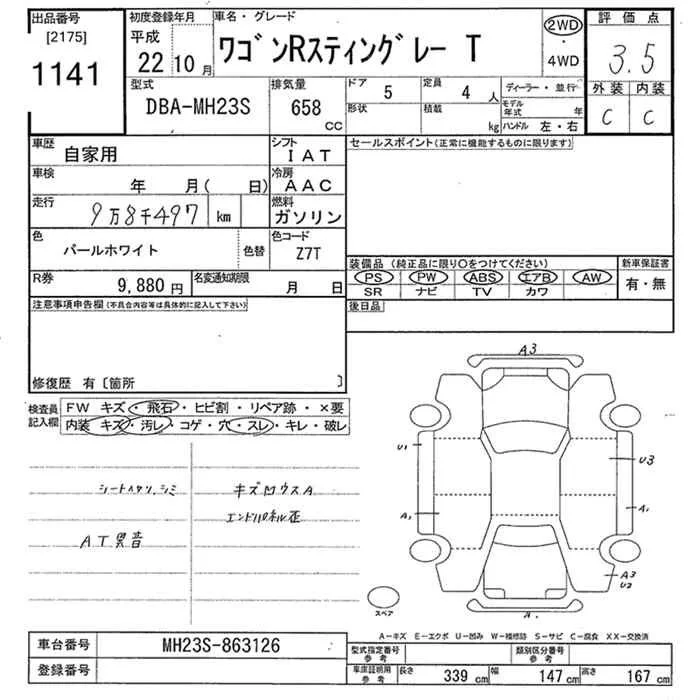 出品番号 初度登録年月 車名・グレード 評価点
[2175] 平成 ワゴンRスティングレー T 2WD
・
1141 22 10月 4WD 3.5
型式 排気量 ドア 5 定員 4 人 ディーラー・並行 外装 内装
DBA-MH23S 658 cc 形状 積載 kg モデル年式 年 C C
ハンドル 左・右
車歴 自家用 シフト IAT セールスポイント(正常に機能するものに限ります)
車検 年 月( 日) 冷房 AAC
走行 9万8千497 km 燃料 ガソリン
色 パールホワイト 色替 色コード Z7T
装備品 (純正品に限り○をつけてください) 新車保証書
R券 9,880 円 名変通知期限 月 日 PS PW ABS エアB AW 有・無
SR ナビ TV カワ
注意事項申告欄(不具合内容等は具体的に記入して下さい) 後日品
修復歴 有〔箇所 〕
検査員記入欄 FW キズ・飛石・ヒビ割・リペア跡・×要
内装 キズ・汚レ・コゲ・穴・スレ・キレ・破レ
A3
U1 U3
シートヘタリ.シミ キズ凹ウスA
エンドパネル歪
A1 A1
AT異音
A3
U2
スペア
A-キズ E-エクボ U-凹み W-補修跡 S-サビ C-腐食 XX-交換済
車台番号 MH23S-863126 型式指定番号 参考 類別区分番号 参考
登録番号 車庫証明用 参考 長さ 339 cm 幅 147 cm 高さ 167 cm